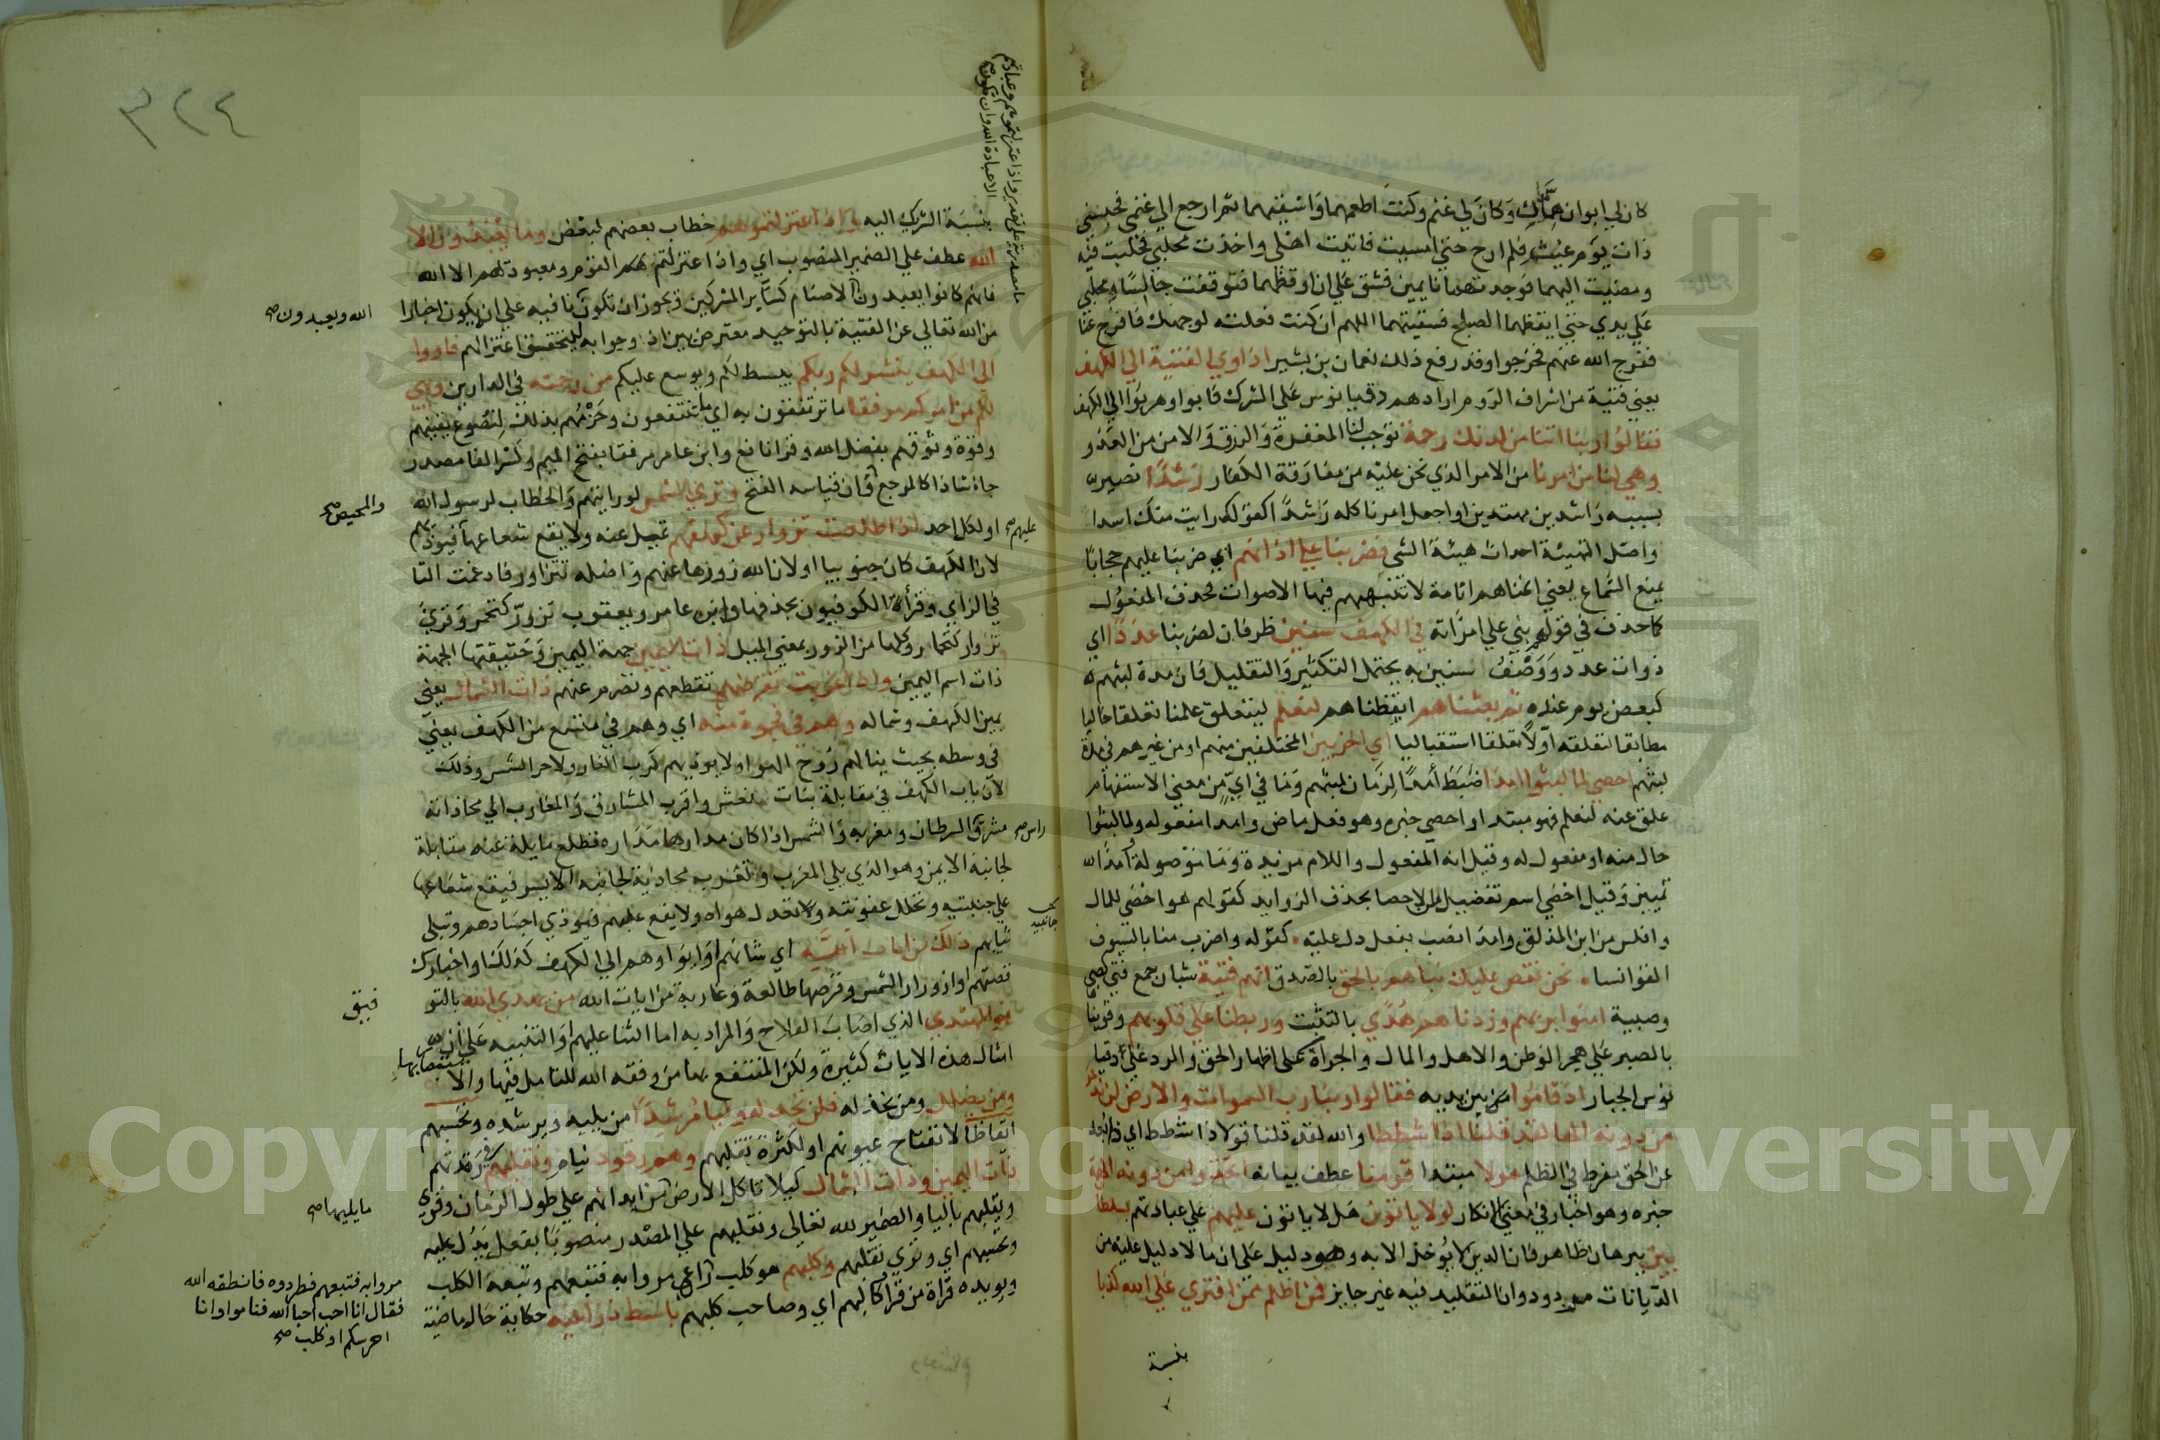 كان لي ابوان همان وكان لي غنم وكنت اطعمهما واسقيهما ثم ارجع الي غنمي فحبسني
ذات يوم غيث فلم ارح حتي امسيت فاتيت اهلي واخذت محلبي فحلبت فيه
ومضيت اليهما فوجدتهما نايمين فشق علي ان اوقظهما فتوقفت جالسا ومحلبي
علي يدي حتي ايقظهما الصبح فسقيتهما اللهم ان كنت فعلته لوجهك فافرج عنا
ففرج الله عنهم فخرجوا وقد رفع ذلك نعمان بن بشير اذ اوي الفتية الي الكهف
يعني فتية من اشراف الروم ارادهم دقيانوس علي الشرك فابوا وهربوا الي الكهف
فقالوا ربنا اتنا من لدنك رحمة توجب لنا المغفرة والرزق والامن من العدو
وهيي لنا من امرنا من الامر الذي نحن عليه من مفارقة الكفار رشدا نصير
بسببه راشدين مهتدين او اجعل امرنا كله رشدا كقولك رايت منك اسدا
واصل التهيئة احداث هيئة الشي فضربنا علي اذانهم اي ضربنا عليهم حجابا
يمنع السماع يعني انمناهم انامة لا تنبههم فيها الاصوات فحذف المفعول
كما حذف في قولهم بني علي امراته في الكهف سنين ظرفان لضربنا عددا اي
ذوات عدد ووصف سنين به يحتمل التكثير والتقليل فان مدة لبثهم
كبعض يوم عنده ثم بعثناهم ايقظناهم لنعلم ليتعلق علمنا تعلقا حاليا
مطابقا لتعلقه اولا تعلقا استقباليا اي الحزبين المختلفين منهم او من غيرهم في مدة
لبثهم احصي لما لبثوا امدا ضبط أمدا لزمان لبثهم وما في اي من معني الاستفهام
علق عنه لنعلم فهو مبتدا واحصي خبره وهو فعل ماض وامدا مفعوله ولما لبثوا
حال منه او مفعول له وقيل انه المفعول واللام مزيدة وما موصولة وأمدا
تمييز وقيل احصي اسم تفضيل من الاحصا بحذف الزوايد كقولهم هو احصي للمال
وافلس من ابن المذلق وامدا نصب بفعل دل عليه كقوله واضرب منا بالسيوف
القوانسا نحن نقص عليك نباهم بالحق بالصدق انهم فتية شبان جمع فتي كصبي
وصبية امنوا بربهم وزدناهم هدي بالتثبت وربطنا علي قلوبهم وقويناها
بالصبر علي هجر الوطن والاهل والمال والجراة علي اظهار الحق والرد علي دقيا
نوس الجبار اذ قاموا من بين يديه فقالوا ربنا رب السموات والارض لن ندعو
من دونه الها لقد قلنا اذا شططا والله لقد قلنا قولا ذا شطط اي ذا بعد
عن الحق مفرط في الظلم هولا مبتدا قومنا عطف بيانه اتخذوا من دونه الهة
خبره وهو اخبار في معني انكار لولا ياتون هلا ياتون عليهم علي عبادتهم بسلطان
بين ببرهان ظاهر فان الدين لا يؤخذ الا به وهو دليل علي ان ما لا دليل عليه من
الديانات مردود وان التقليد فيه غير جايز فمن اظلم ممن افتري علي الله كذبا
بنسبة
٣٢٤
بنسبة الشرك اليه واذ اعتزلتموهم خطاب بعضهم لبعض وما يعبدون الا
الله عطف علي الضمير المنصوب اي واذ اعتزلتم القوم ومعبوديهم الا الله
فانهم كانوا يعبدون الاصنام كساير المشركين ويجوز ان تكون ما نافيه علي ان يكون اخبارا
من الله تعالي عن الفتية بالتوحيد معترض بين اذ وجوابه لتحقيق اعتزالهم فاووا
الي الكهف ينشر لكم ربكم يبسط لكم ويوسع عليكم من رحمته في الدارين ويهيي
لكم من امركم مرفقا ما ترتفقون به اي تنتفعون وجزمهم بذلك لنصوع يقينهم
وقوة وثوقهم بفضل الله وقرا نافع وابن عامر مرفقا بفتح الميم وكسر الفا مصدر
جا شاذا كالمرجع فان قياسه الفتح وتري الشمس لو رايتهم والخطاب لرسول الله
او لكل احد اذا طلعت تزاور عن كهفهم تميل عنه ولا يقع شعاعها فيوذيهم
لان الكهف كان جنوبيا او لان الله زورها عنهم واصله تتزاور فادغمت التا
في الزاي وقرأة الكوفيون بحذفها وابن عامر ويعقوب تزور كتحمر وقري
تزوار كتحمار وكلها من الزور بمعني الميل ذات اليمين جهة اليمين وحقيقتها الجهة
ذات اسم اليمين واذا غربت تقرضهم تقطعهم وتصرم عنهم ذات الشمال يعني
يمين الكهف وشماله وهم في فجوة منه اي وهم في متسع من الكهف يعني
في وسطه بحيث ينالهم روح الهوا ولا يوذيهم كرب الغار ولا حر الشمس وذلك
لان باب الكهف في مقابلة بنات نعش واقرب المشارق والمغارب الي محاذاته
مشرق السرطان ومغربه والشمس اذا كان مدارها مداره فطلع مايلة عنه مقابلة
لجانبه الايمن وهو الذي يلي المغرب وتغرب محاذية لجانبه الايسر فيقع شعاعها
علي جنبتيه وتحلل عفونته وتعدل هواه ولا يقع عليهم فيوذي اجسادهم وتبلي
ثيابهم ذلك من ايات الله اي شانهم او ايواوهم الي الكهف كذلك او اخبارك
قصتهم او ازورار الشمس وقرضها طالعة وغاربة من ايات الله من يهدي الله بالتو
فهو المهتدي الذي اصاب الفلاح والمراد به اما الثنا عليهم او التنبيه علي ان
امثال هذه الايات كثيرة ولكن المنتفع بها من وفقه الله للتامل فيها والا
ومن يضلل ومن يخذله فلن تجد له وليا مرشدا من يليه ويرشده وتحسبهم
ايقاظا لانفتاح عيونهم او لكثرة تقلبهم وهم رقود نيام ونقلبهم في رقدتهم
ذات اليمين وذات الشمال كيلا تاكل الارض من ابدانهم علي طول الزمان وقري
ويقلبهم باليا والضمير لله تعالي وتقلبهم علي المصدر منصوبا بفعل يدل عليه
وتحسبهم اي وتري تقلبهم وكلبهم هو كلب راعي مروا به فتبعهم وتبعه الكلب
ويويده قراة من قرا وكالبهم اي وصاحب كلبهم باسط ذراعيه حكاية حال ماضية
واذ اعتزلتموهم وعبادتهم
الا عبادة الله وان يكون
الله ويعبدون صح
والمحيض صح
عليهم صح
راس صح
فيق
يستبصر بها
ما يليها صح
مروا به فتبعهم فطردوه فانطقه الله
فقال انا احب احبا الله فناموا وانا
احرسكم او كلب صح
Copyright © King Saud University